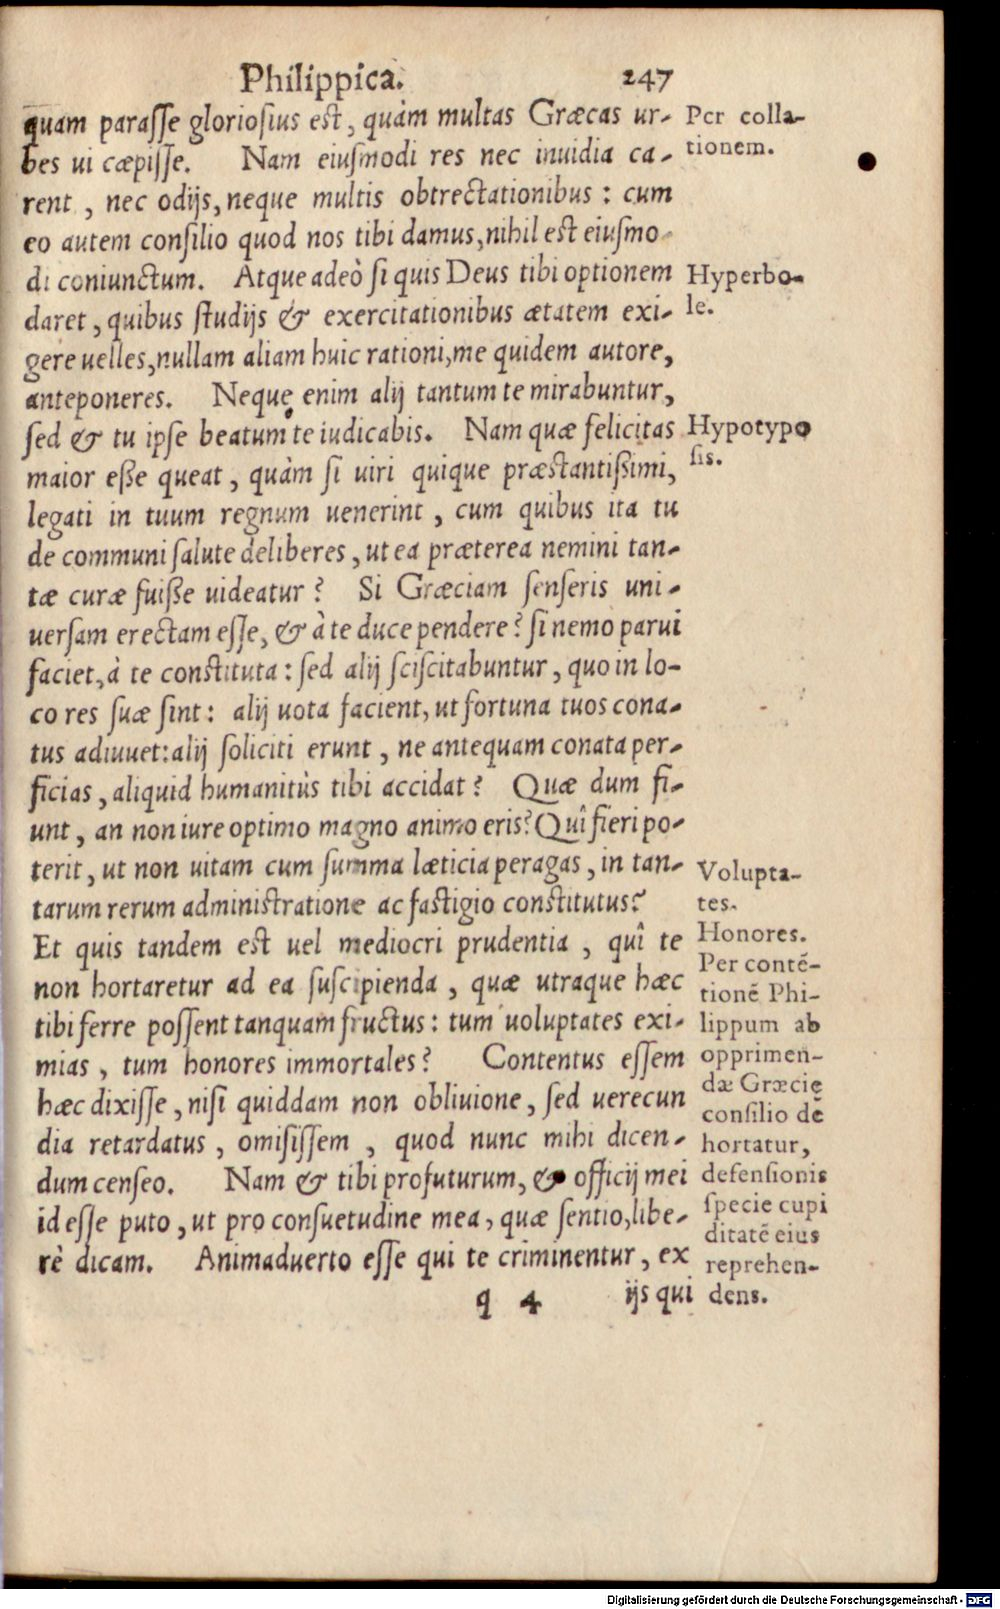 Philippica. 247
quam parasse gloriosius est, quàm multas Græcas ur-
bes ui cæpisse. Nam eiusmodi res nec inuidia ca-
rent, nec odijs, neque multis obtrectationibus: cum
eo autem consilio quod nos tibi damus, nihil est eiusmo-
di coniunctum. Atque adeò si quis Deus tibi optionem
daret, quibus studijs & exercitationibus ætatem exi-
gere uelles, nullam aliam huic rationi, me quidem autore,
anteponeres. Neque enim alij tantum te mirabuntur,
sed & tu ipse beatum te iudicabis. Nam quæ felicitas
maior eße queat, quàm si uiri quique præstantißimi,
legati in tuum regnum uenerint, cum quibus ita tu
de communi salute deliberes, ut ea præterea nemini tan-
tæ curæ fuiße uideatur? Si Græciam senseris uni-
uersam erectam esse, & à te duce pendere? si nemo parui
faciet, à te constituta: sed alij sciscitabuntur, quo in lo-
co res suæ sint: alij uota facient, ut fortuna tuos cona-
tus adiuuet: alij soliciti erunt, ne antequam conata per-
ficias, aliquid humanitùs tibi accidat? Quæ dum fi-
unt, an non iure optimo magno animo eris? Quî fieri po-
terit, ut non uitam cum summa læticia peragas, in tan-
tarum rerum administratione ac fastigio constitutus?
Et quis tandem est uel mediocri prudentia, quî te
non hortaretur ad ea suscipienda, quæ utraque hæc
tibi ferre possent tanquam fructus: tum uoluptates exi-
mias, tum honores immortales? Contentus essem
hæc dixisse, nisi quiddam non obliuione, sed uerecun
dia retardatus, omisissem, quod nunc mihi dicen-
dum censeo. Nam & tibi profuturum, & officij mei
id esse puto, ut pro consuetudine mea, quæ sentio, libe-
rè dicam. Animaduerto esse qui te criminentur, ex
q 4 ijs qui
Per colla-
tionem.
Hyperbo-
le.
Hypotypo
sis.
Volupta-
tes.
Honores.
Per contē-
tionē Phi-
lippum ab
opprimen-
dæ Græcię
consilio dē
hortatur,
defensionis
specie cupi
ditatē eius
reprehen-
dens.
Digitalisierung gefördert durch die Deutsche Forschungsgemeinschaft - DFG